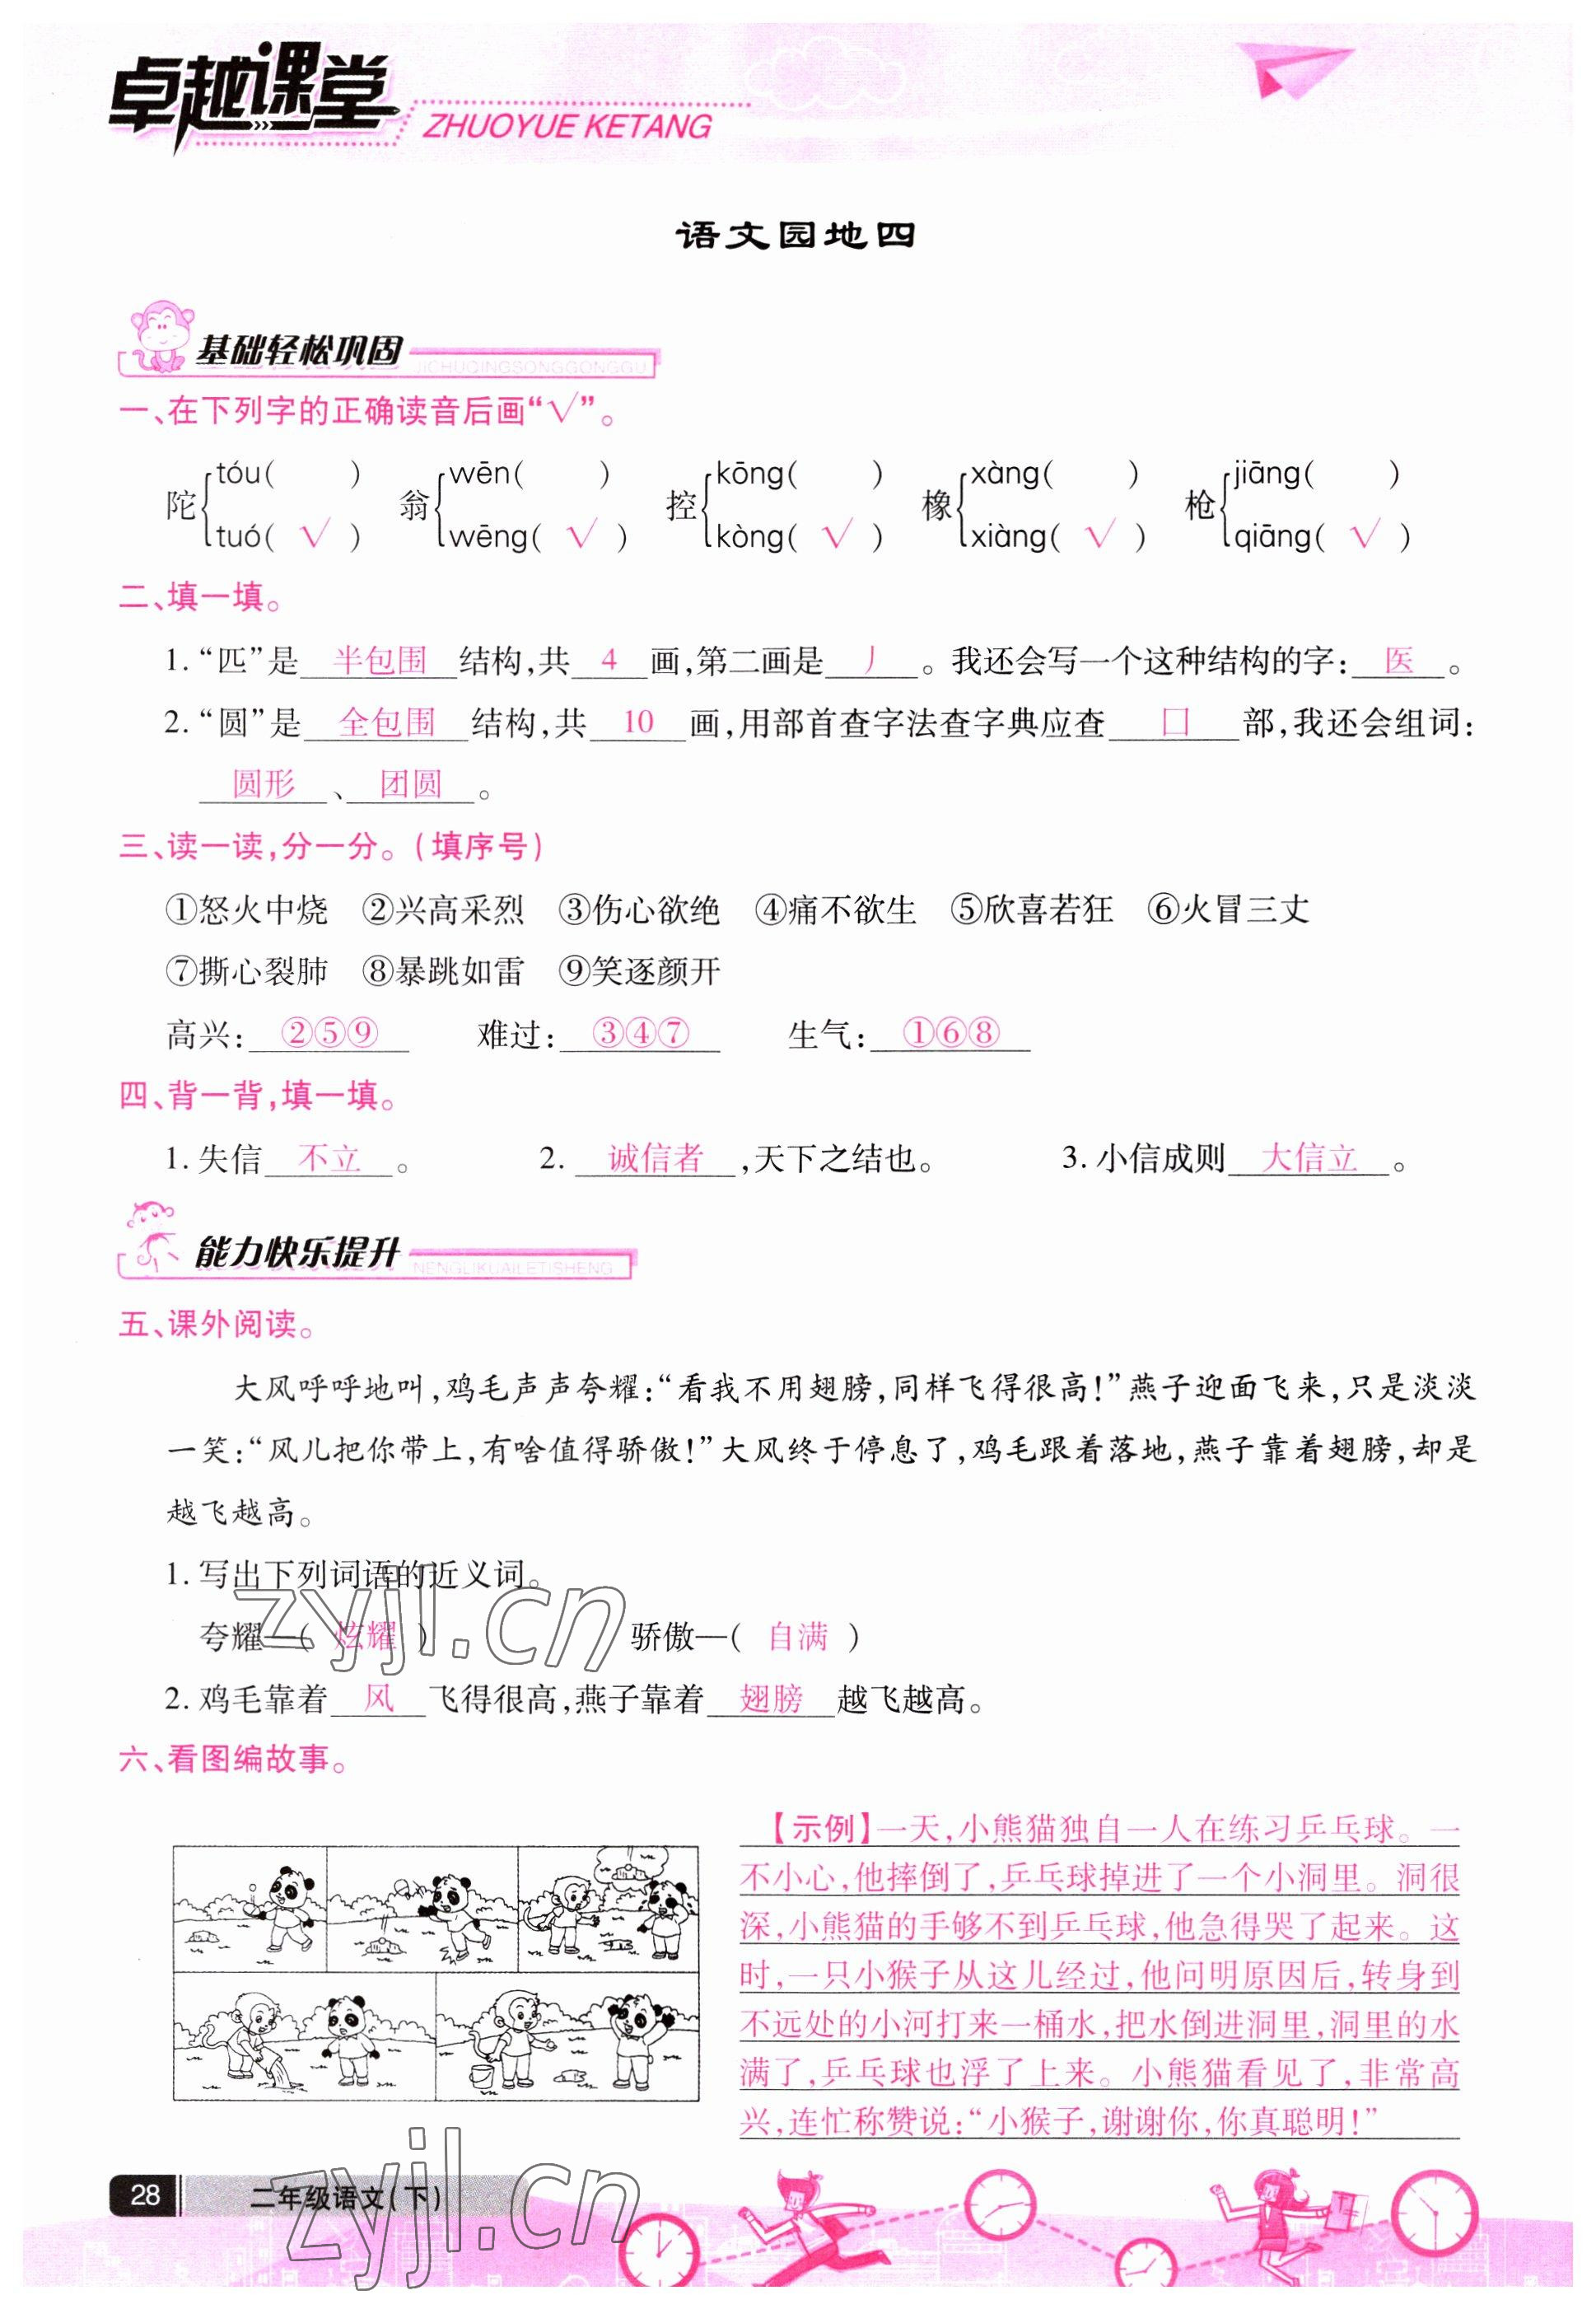 卓越课堂
ZHUOYUE KETANG
语文园地四
基础轻松巩固
JICHUQINGSONGGONGGU
一、在下列字的正确读音后画“√”。
陀 tóu(  ) tuó( √ ) 翁 wēn(  ) wēng( √ ) 控 kōng(  ) kòng( √ ) 橡 xàng(  ) xiàng( √ ) 枪 jiāng(  ) qiāng( √ )
二、填一填。
1.“匹”是 半包围 结构,共 4 画,第二画是 丿 。我还会写一个这种结构的字: 医 。
2.“圆”是 全包围 结构,共 10 画,用部首查字法查字典应查 囗 部,我还会组词:
圆形 、 团圆 。
三、读一读,分一分。(填序号)
①怒火中烧 ②兴高采烈 ③伤心欲绝 ④痛不欲生 ⑤欣喜若狂 ⑥火冒三丈
⑦撕心裂肺 ⑧暴跳如雷 ⑨笑逐颜开
高兴: ②⑤⑨ 难过: ③④⑦ 生气: ①⑥⑧
四、背一背,填一填。
1. 失信 不立 。 2. 诚信者 ,天下之结也。 3. 小信成则 大信立 。
能力快乐提升
NENGLIKUAILETISHENG
五、课外阅读。
大风呼呼地叫,鸡毛声声夸耀:“看我不用翅膀,同样飞得很高!”燕子迎面飞来,只是淡淡
一笑:“风儿把你带上,有啥值得骄傲!”大风终于停息了,鸡毛跟着落地,燕子靠着翅膀,却是
越飞越高。
1. 写出下列词语的近义词。
夸耀—( 炫耀 ) 骄傲—( 自满 )
2. 鸡毛靠着 风 飞得很高,燕子靠着 翅膀 越飞越高。
六、看图编故事。
【示例】一天,小熊猫独自一人在练习乒乓球。一
不小心,他摔倒了,乒乓球掉进了一个小洞里。洞很
深,小熊猫的手够不到乒乓球,他急得哭了起来。这
时,一只小猴子从这儿经过,他问明原因后,转身到
不远处的小河打来一桶水,把水倒进洞里,洞里的水
满了,乒乓球也浮了上来。小熊猫看见了,非常高
兴,连忙称赞说:“小猴子,谢谢你,你真聪明!”
28
二年级语文(下)
zyjl.cn
zyjl.cn